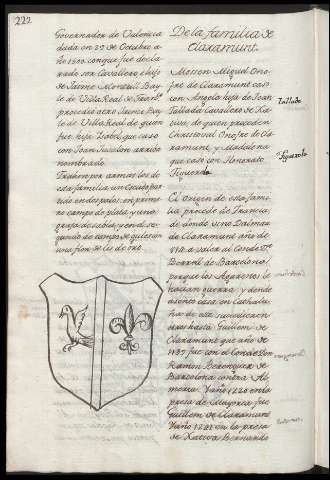 222
Governador de Valencia
dada en 29 de Octubre a-
ño 1500. conque fue decla-
rado ser Cavallero, e hijo
de Jaime Monzull Bay-
le de Villa Real, de Jaime
procedio otro Jaime Bay-
le de Villa Real, de quien
fue hija Isabel, que casó
con Joan arriba
nombrado.
Trahen por armas los de
esta familia un Escudo par-
tido en dos palos, en prime-
ro campo de plata y una
de sable, y en el se-
gundo de campo de gules
una flor de lis de oro.
De la familia de
Claramunt.
Mossen Miguel Ono-
fre de Claramunt casó
con Angela hija de Joan
Tallada Cavallero de Xa-
tiva, de quien proceden
Onofre de Cla-
ramunt y Madalena
que casó con Honorato
Figuerola
El origen de esta fami-
lia procede de Francia,
de donde vino Dalmau
de Claramunt año de
a valer al Conde Dn
Borrell de Barcelona,
porque los Agarenos le
hacian guerra, y donde
asiento casa en Cathalu-
ña de este sucedieron
otros hasta Guillem de
Claramunt que año de
1137 fue con el Conde Don
Ramon Berenguer de
Barcelona contra Al-
meria. Y año 1228 en la
presa de Mayorca fue
Guillem de Claramunt
Y año en la presa
de Xativa Bernardo
Tallada
Figuerola